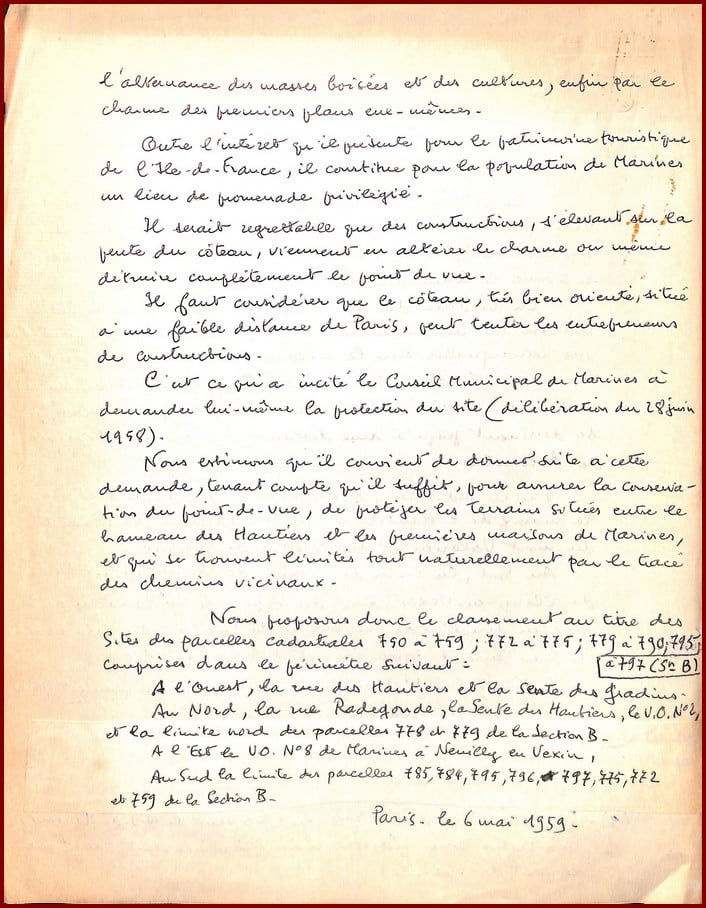 l'alternance des masses boisées et des cultures, enfin par le
charme des premiers plans eux-mêmes.
Outre l'intérêt qu'il présente pour le patrimoine touristique
de l'Ile-de-France, il constitue pour la population de Marines
un lieu de promenade privilégié.
Il serait regrettable que des constructions, s'élevant sur la
pente du côteau, viennent en altérer le charme ou même
détruire complètement le point de vue.
Il faut considérer que le côteau, très bien orienté, situé
à une faible distance de Paris, peut tenter les entrepreneurs
de constructions.
C'est ce qui a incité le Conseil Municipal de Marines à
demander lui-même la protection du site (délibération du 28 juin
1958).
Nous estimons qu'il convient de donner suite à cette
demande, tenant compte qu'il suffit, pour assurer la conserva-
tion du point-de-vue, de protéger les terrains situés entre le
hameau des Hautiers et les premières maisons de Marines,
et qui se trouvent limités tout naturellement par le tracé
des chemins vicinaux.
Nous proposons donc le classement au titre des
Sites des parcelles cadastrales 750 à 759 ; 772 à 775 ; 779 à 790, 795
à 797 (Son B)
comprises dans le périmètre suivant :
A l'Ouest, la rue des Hautiers et la Sente des Gradins.
Au Nord, la rue Radegonde, la Sente des Hautiers, le V.O. N°2,
et la limite nord des parcelles 778 et 779 de la Section B.
A l'Est le V.O. N°8 de Marines à Neuilly en Vexin,
Au Sud la limite des parcelles 785, 784, 795, 796, 797, 775, 772
et 759 de la Section B.
Paris. le 6 mai 1959.